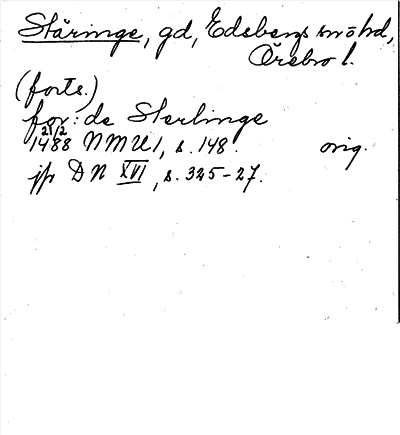 Stäringe, gd, Edsbergs sn o hd,
Örebro l.
(forts.)
for: de Sterlinge
21/2
1488 NMU 1, s. 148. orig.
jfr DN XVI, s. 325-27.